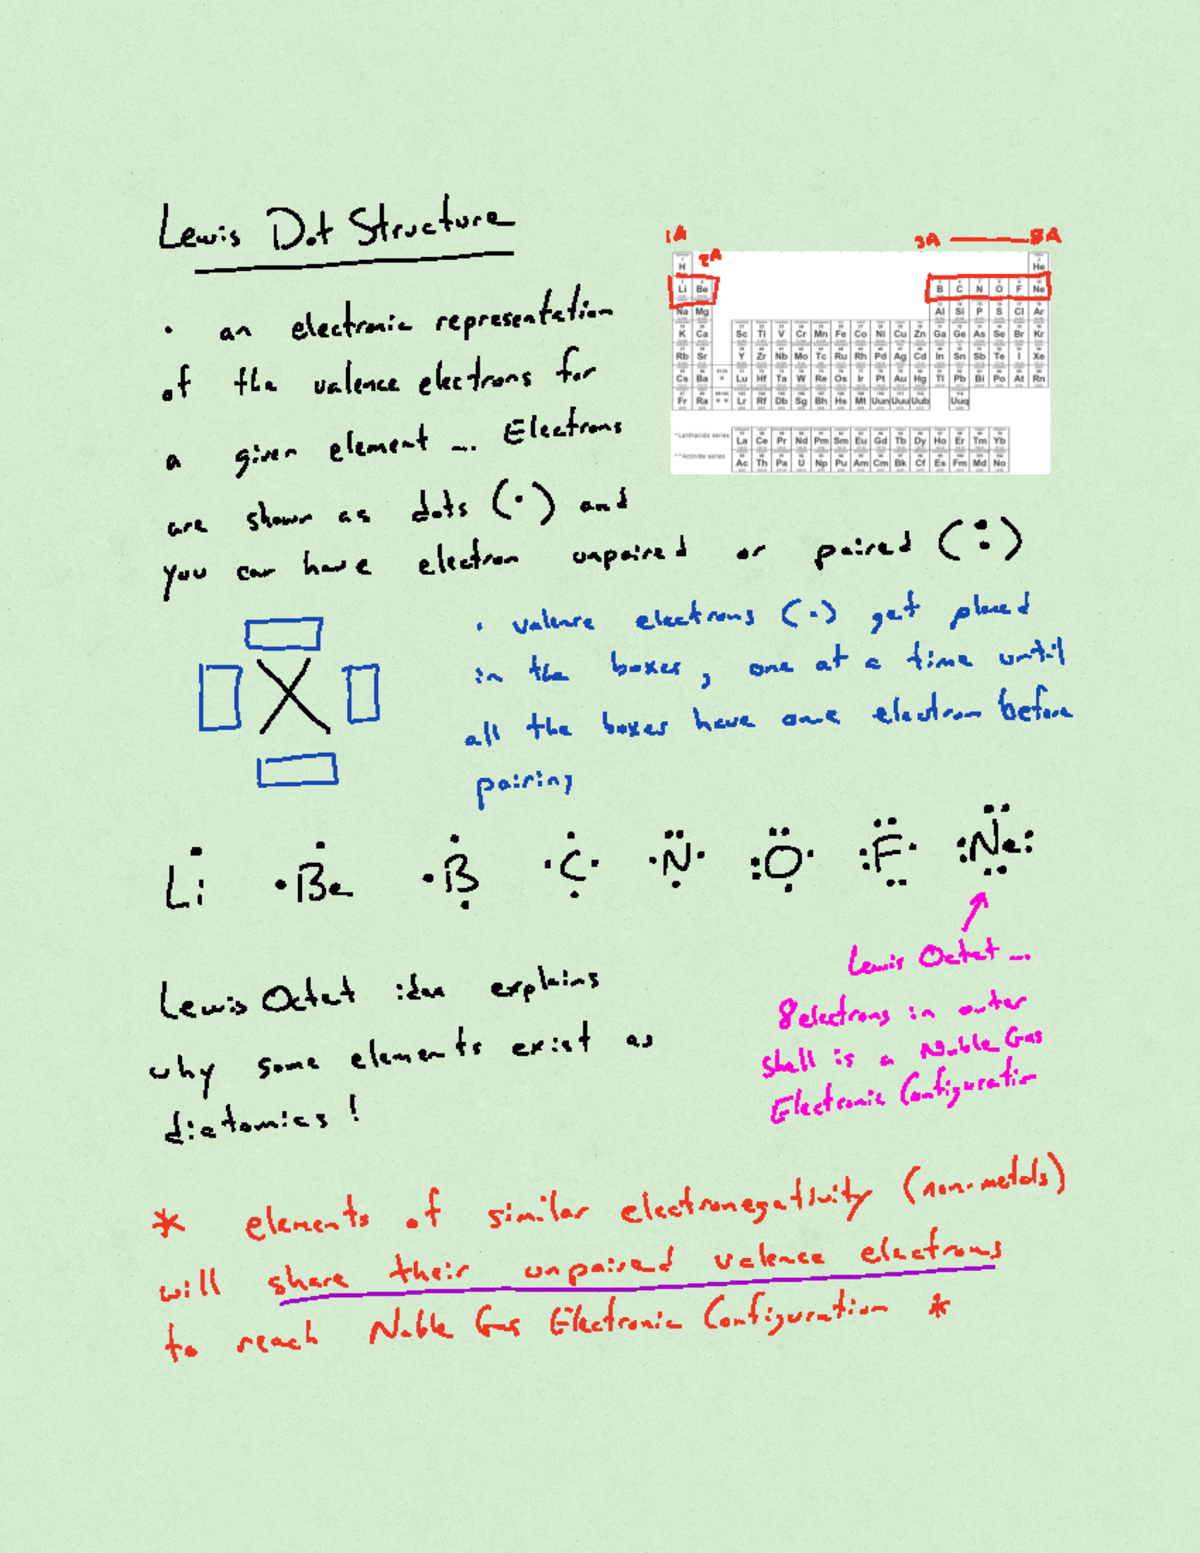 Lewis Dot Structure
1A
2A
3A — 8A
H He
Li Be B C N O F Ne
Na Mg Al Si P S Cl Ar
K Ca Sc Ti V Cr Mn Fe Co Ni Cu Zn Ga Ge As Se Br Kr
Rb Sr Y Zr Nb Mo Tc Ru Rh Pd Ag Cd In Sn Sb Te I Xe
Cs Ba * Lu Hf Ta W Re Os Ir Pt Au Hg Tl Pb Bi Po At Rn
Fr Ra ** Lr Rf Db Sg Bh Hs Mt Uun Uuu Uub Uuq
*Lanthanide series La Ce Pr Nd Pm Sm Eu Gd Tb Dy Ho Er Tm Yb
**Actinide series Ac Th Pa U Np Pu Am Cm Bk Cf Es Fm Md No
• an electronic representation
of the valence electrons for
a given element ... Electrons
are shown as dots (•) and
you can have electron unpaired or paired (:)
X
• valence electrons (•) get placed
in the boxes, one at a time until
all the boxes have one electron before
pairing
Li Be B C N O F Ne
Lewis Octet ...
8 electrons in outer
shell is a Noble Gas
Electronic Configuration
Lewis Octet idea explains
why some elements exist as
diatomics!
* elements of similar electronegativity (non-metals)
will share their unpaired valence electrons
to reach Noble Gas Electronic Configuration *